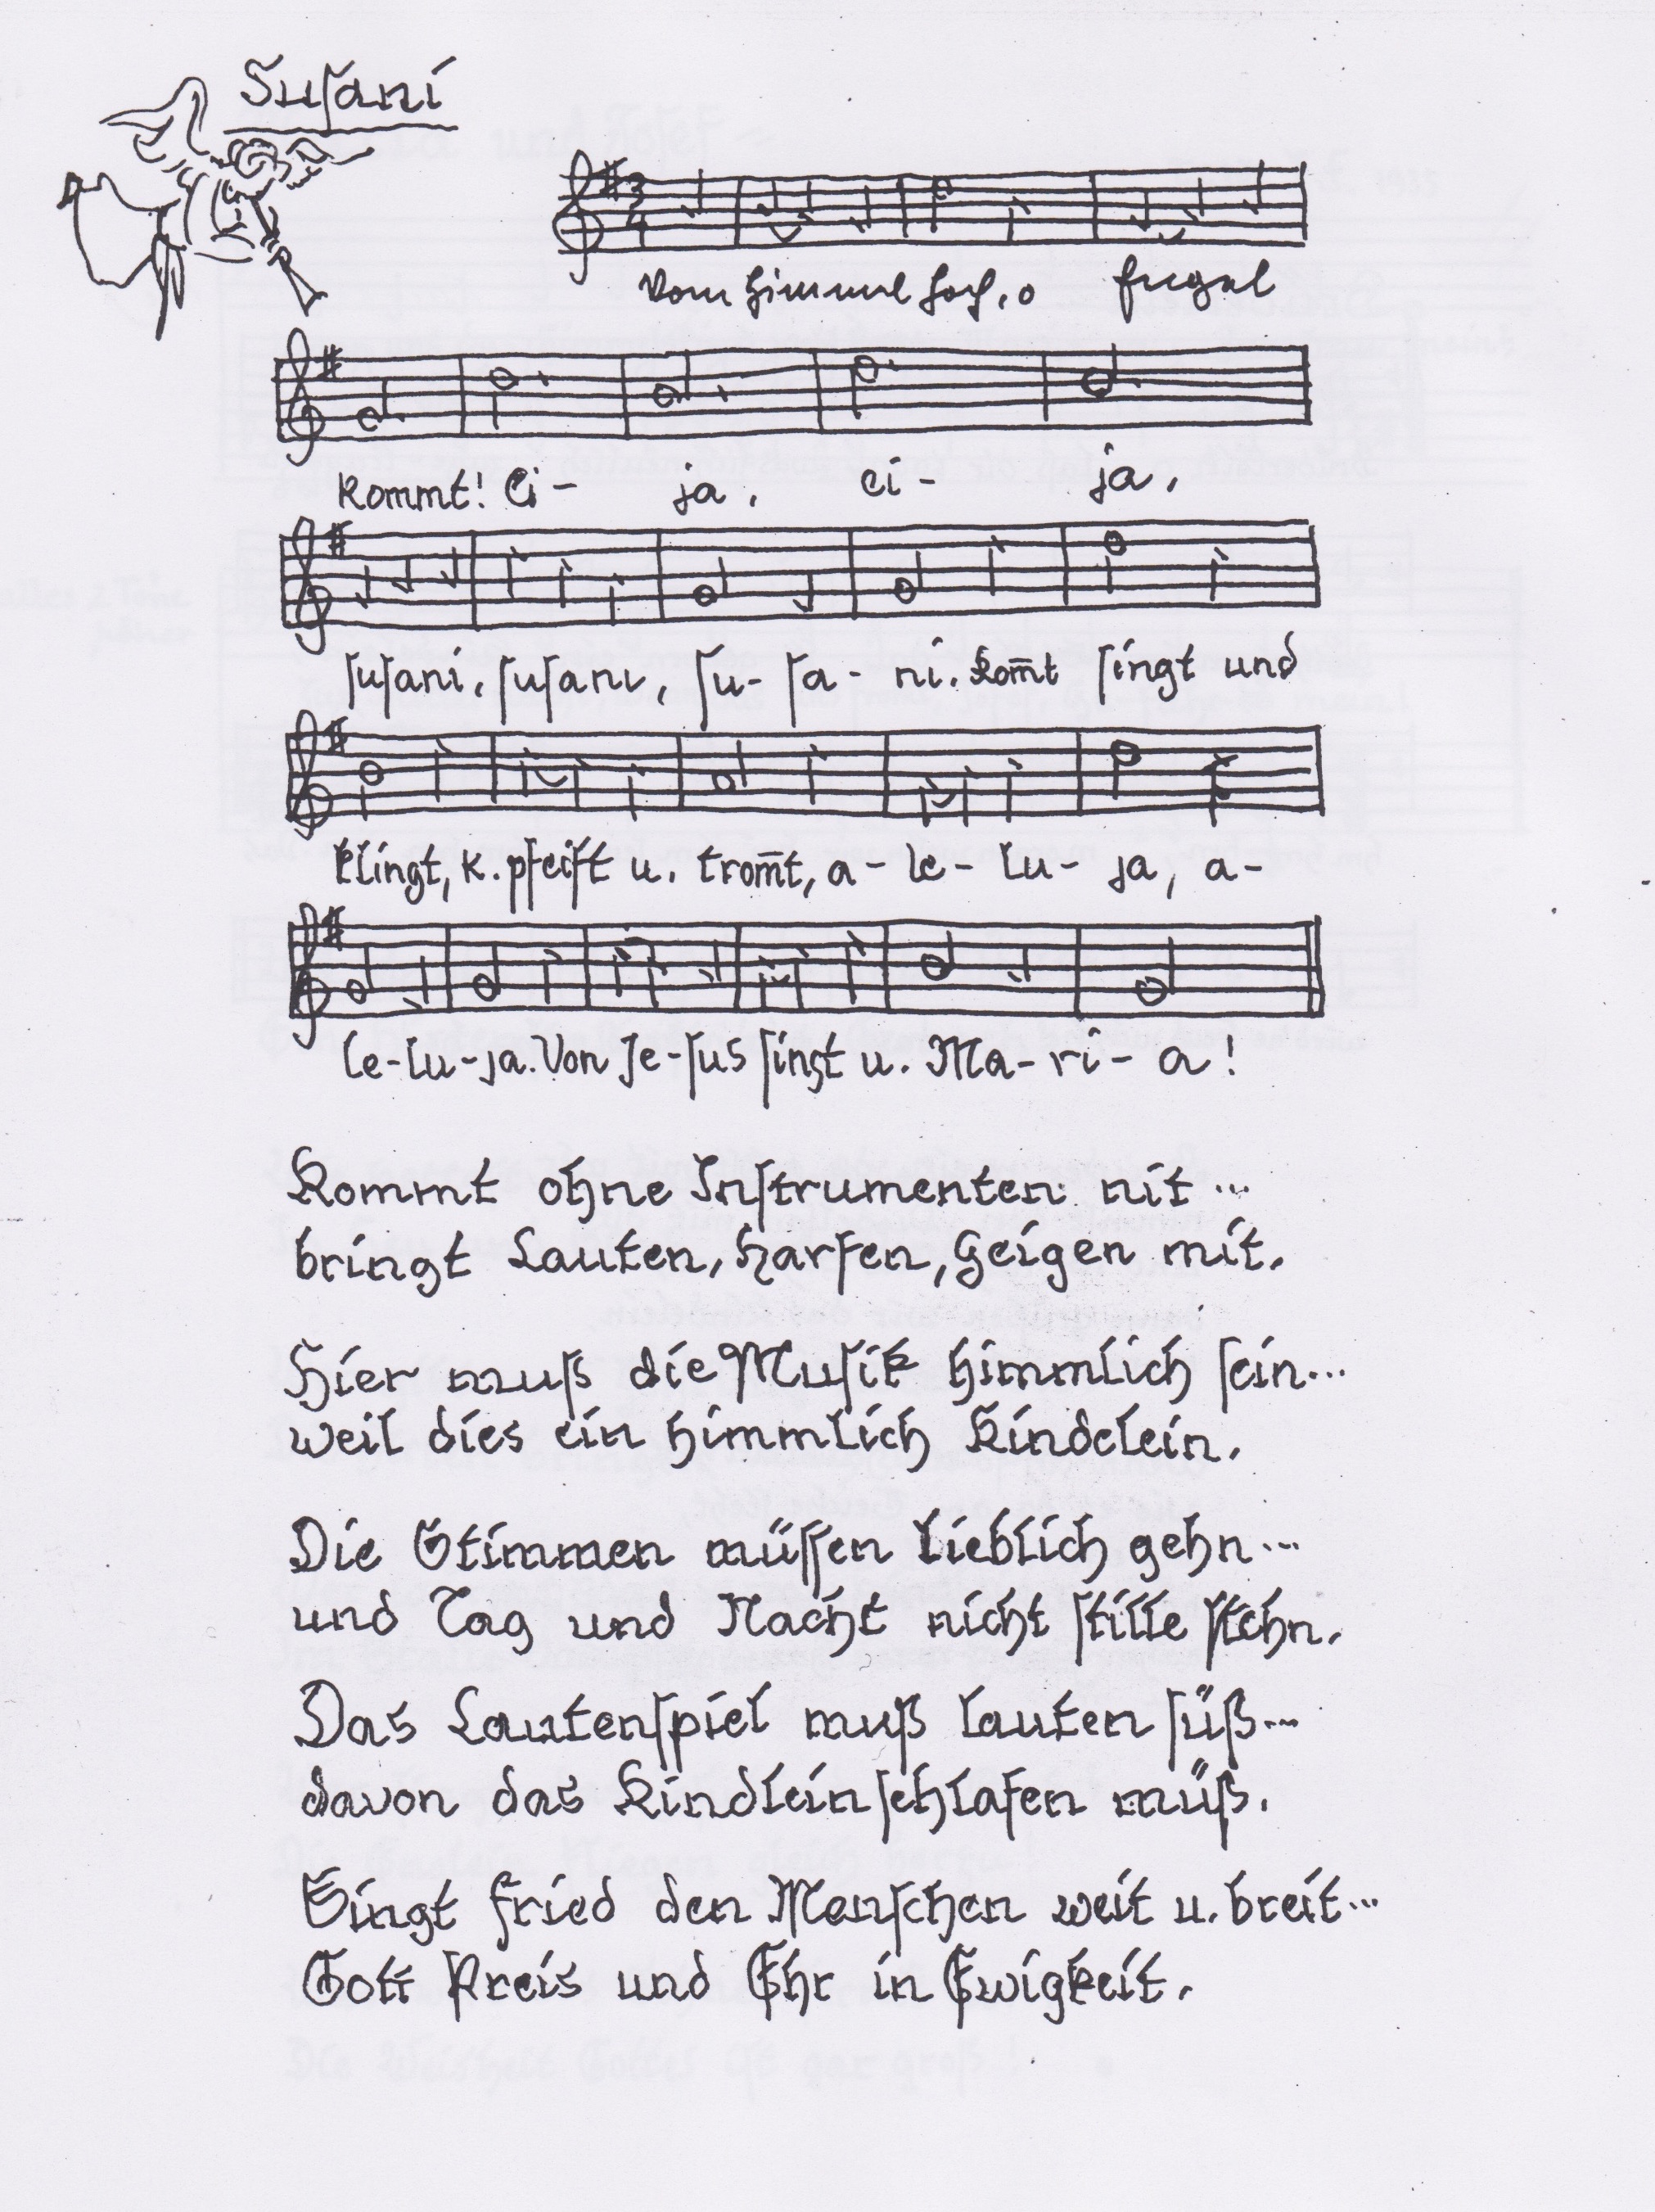 Suſani
3
4
Vom Himmel hoch, o Engel
kommt! Ei- ja, ei- ja,
ſuſani, ſuſani, ſu- ſa- ni. kom̅t ſingt und
klingt, k. pfeift u. trom̅t, a- le- lu- ja, a-
le-lu-ja. Von Je-ſus ſingt u. Ma-ri- a!
Kommt ohne Inſtrumenten nit ...
bringt Lauten, Harfen, Geigen mit.
Hier muß die Muſik himmlich ſein...
weil dies ein himmlich Kindelein.
Die Stimmen müſſen lieblich gehn...
und Tag und Nacht nicht ſtille ſtehn.
Das Lautenſpiel muß lauten ſüß...
davon das Kindlein ſchlafen müß.
Singt Fried den Menſchen weit u. breit...
Gott Preis und Ehr in Ewigkeit.